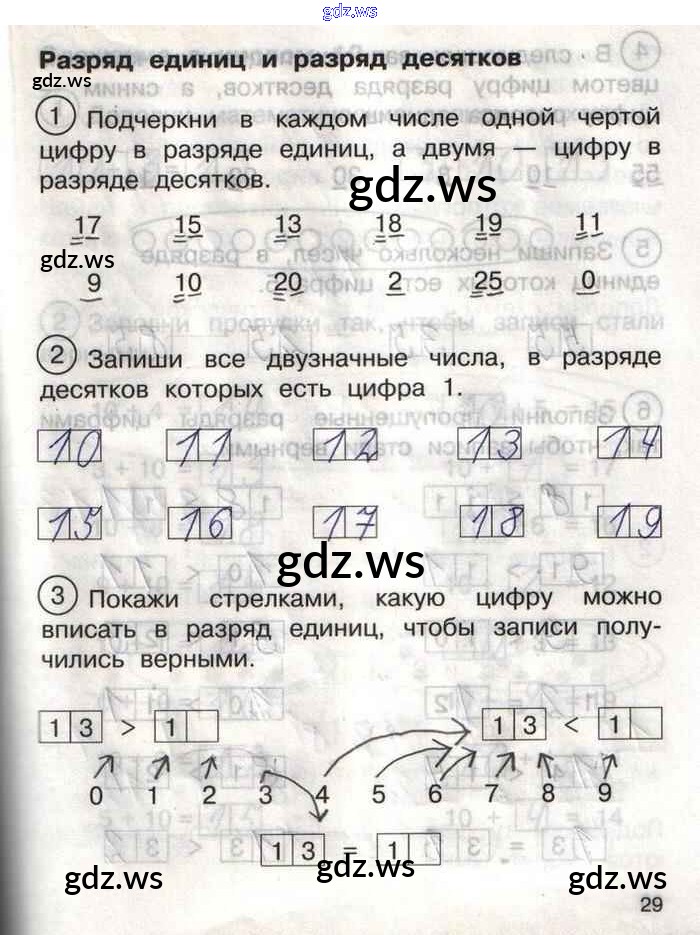 gdz.ws
Разряд единиц и разряд десятков
gdz.ws
1 Подчеркни в каждом числе одной чертой
цифру в разряде единиц, а двумя — цифру в
разряде десятков.
gdz.ws
17 15 13 18 19 11
gdz.ws
9 10 20 2 25 0
2 Запиши все двузначные числа, в разряде
десятков которых есть цифра 1.
10 11 12 13 14
15 16 17 18 19
gdz.ws
3 Покажи стрелками, какую цифру можно
вписать в разряд единиц, чтобы записи полу-
чились верными.
13 > 1 13 < 1
0 1 2 3 4 5 6 7 8 9
13 = 1
gdz.ws gdz.ws gdz.ws
29
gdz.ws